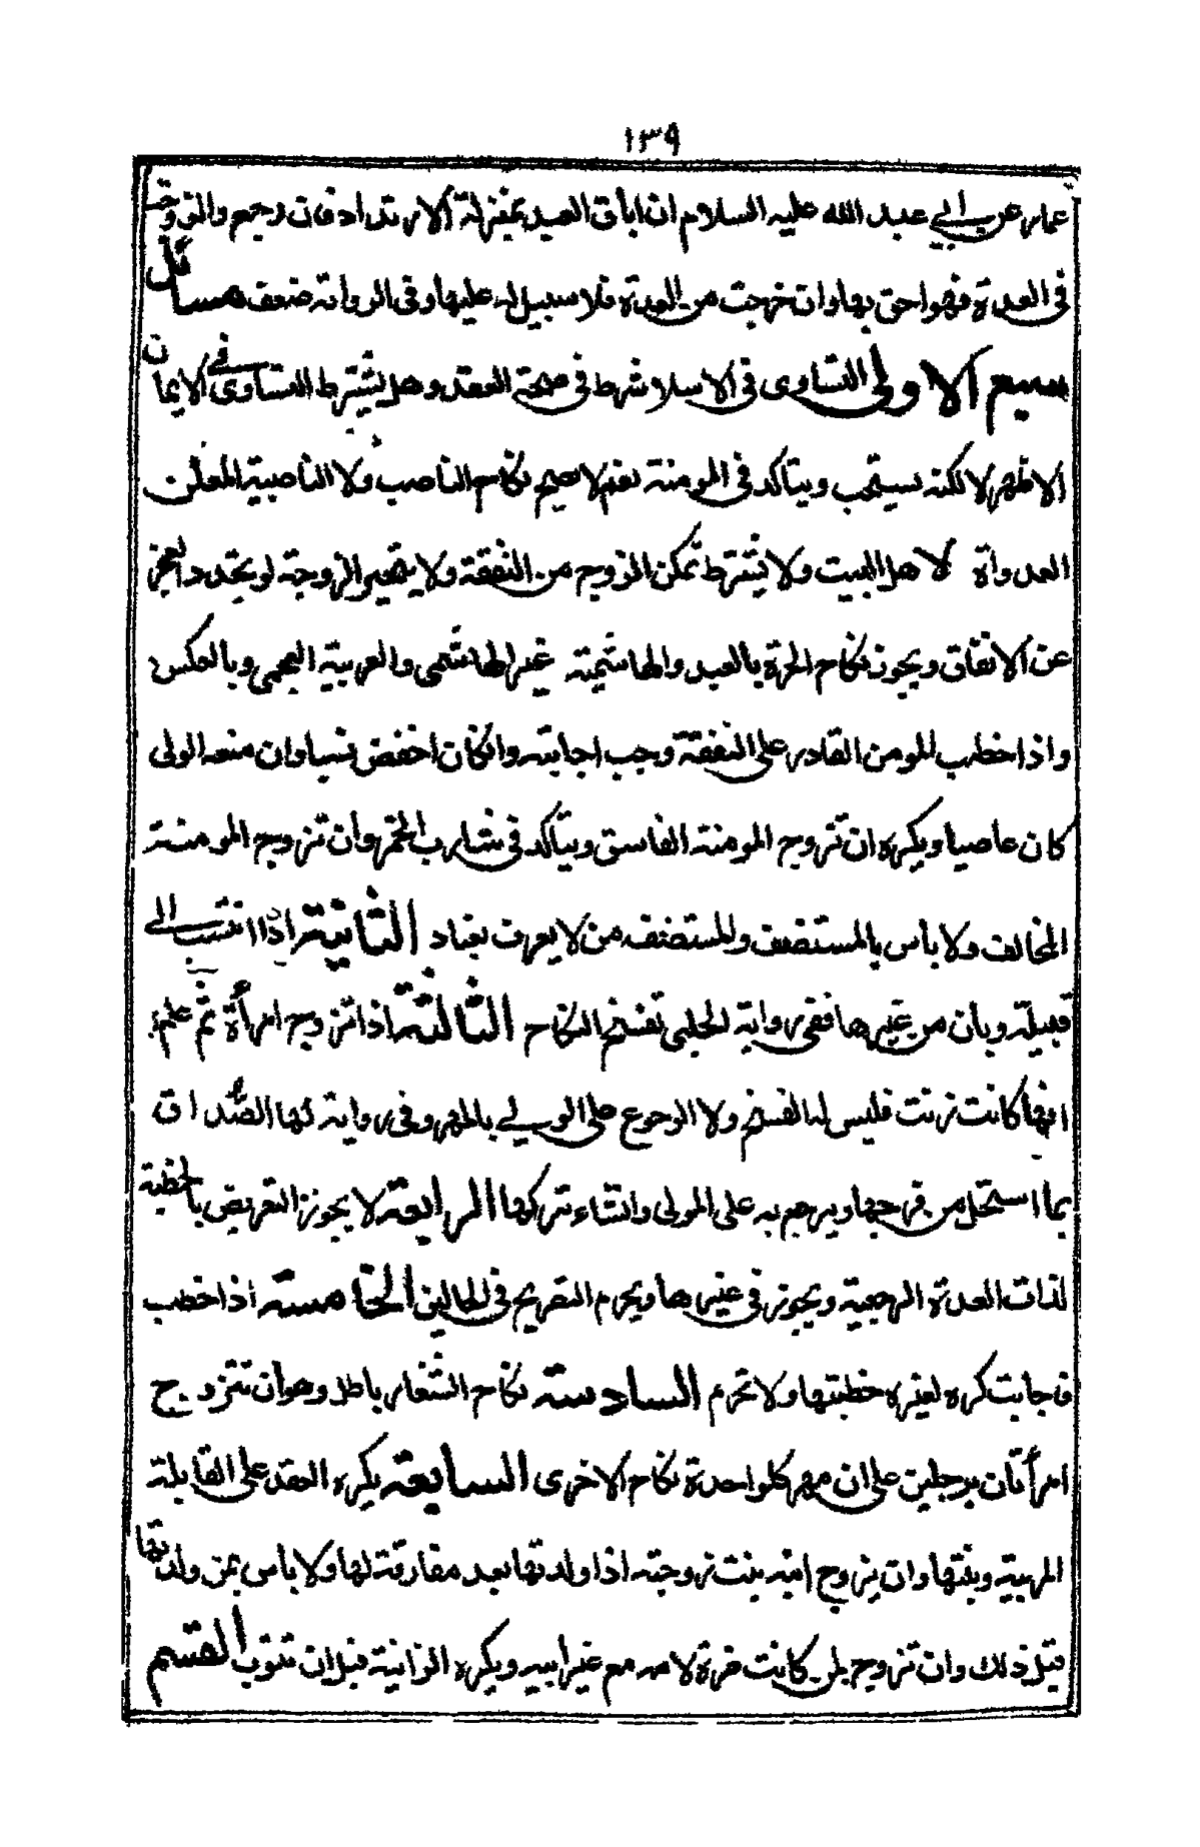 ١٣٩
عمار عن ابي عبد الله عليه السلام ان اباق العبد بمنزلة الارتداد فان رجع والزوجة
في العدة فهو احق بها وان خرجت من العدة فلا سبيل له عليها وفي الرواية ضعف مسائل
سبع الاولى التساوى في الاسلام شرط في صحة العقد وهل يشترط التساوى في الايمان
الاظهر لا لكنه يستحب ويتاكد في المومنة نعم لا يصح نكاح الناصب ولا الناصبية المعلن
العدواة لاهل البيت ولا يشترط تمكن الزوج من النفقة ولا يتخير الزوجة لو تجدد العجز
عن الانفاق ويجوز نكاح الحرة بالعبد والهاشمية غير الهاشمى والعربية العجمى وبالعكس
واذا خطب المومن القادر على النفقة وجب اجابته وانكان اخفض نسبا وان منعه الولى
كان عاصيا ويكره ان تزوج المومنة الفاسق ويتاكد في شارب الخمر وان تزوج المومنة
المخالف ولا باس بالمستضعف والمستضعفه من لا يعرف بعناد الثانية اذا انتسب الى
قبيلة وبان من غيرها ففى رواية الحلبى تفسخ النكاح الثالثة اذا تزوج امرأة ثم علم
انها كانت زنت فليس له الفسخ ولا الرجوع على الولي بالمهر وفى رواية لها الصداق
بما استحل من فرجها ويرجع به على المولى وانشاء تركها الرابعة لا يجوز التعريض بالخطبة
لذات العدة الرجعية ويجوز في غيرها ويحرم التصريح في الحالين الخامسة اذا خطب
فاجابت كره لغيره خطبتها ولا تحرم السادسة نكاح الشغار باطل وهو ان تتزوج
امرأتان برجلين على ان مهر كلواحدة نكاح الاخرى السابعة يكره العقد على القابلة
المربية وبنتها وان يزوج ابنه بنت زوجته اذا ولدتها بعد مفارقة لها ولا باس بمن ولدتها
قبل ذلك وان تزوج بمن كانت ضرة لامه مع غير ابيه ويكره الزانية قبل ان تتوب القسم